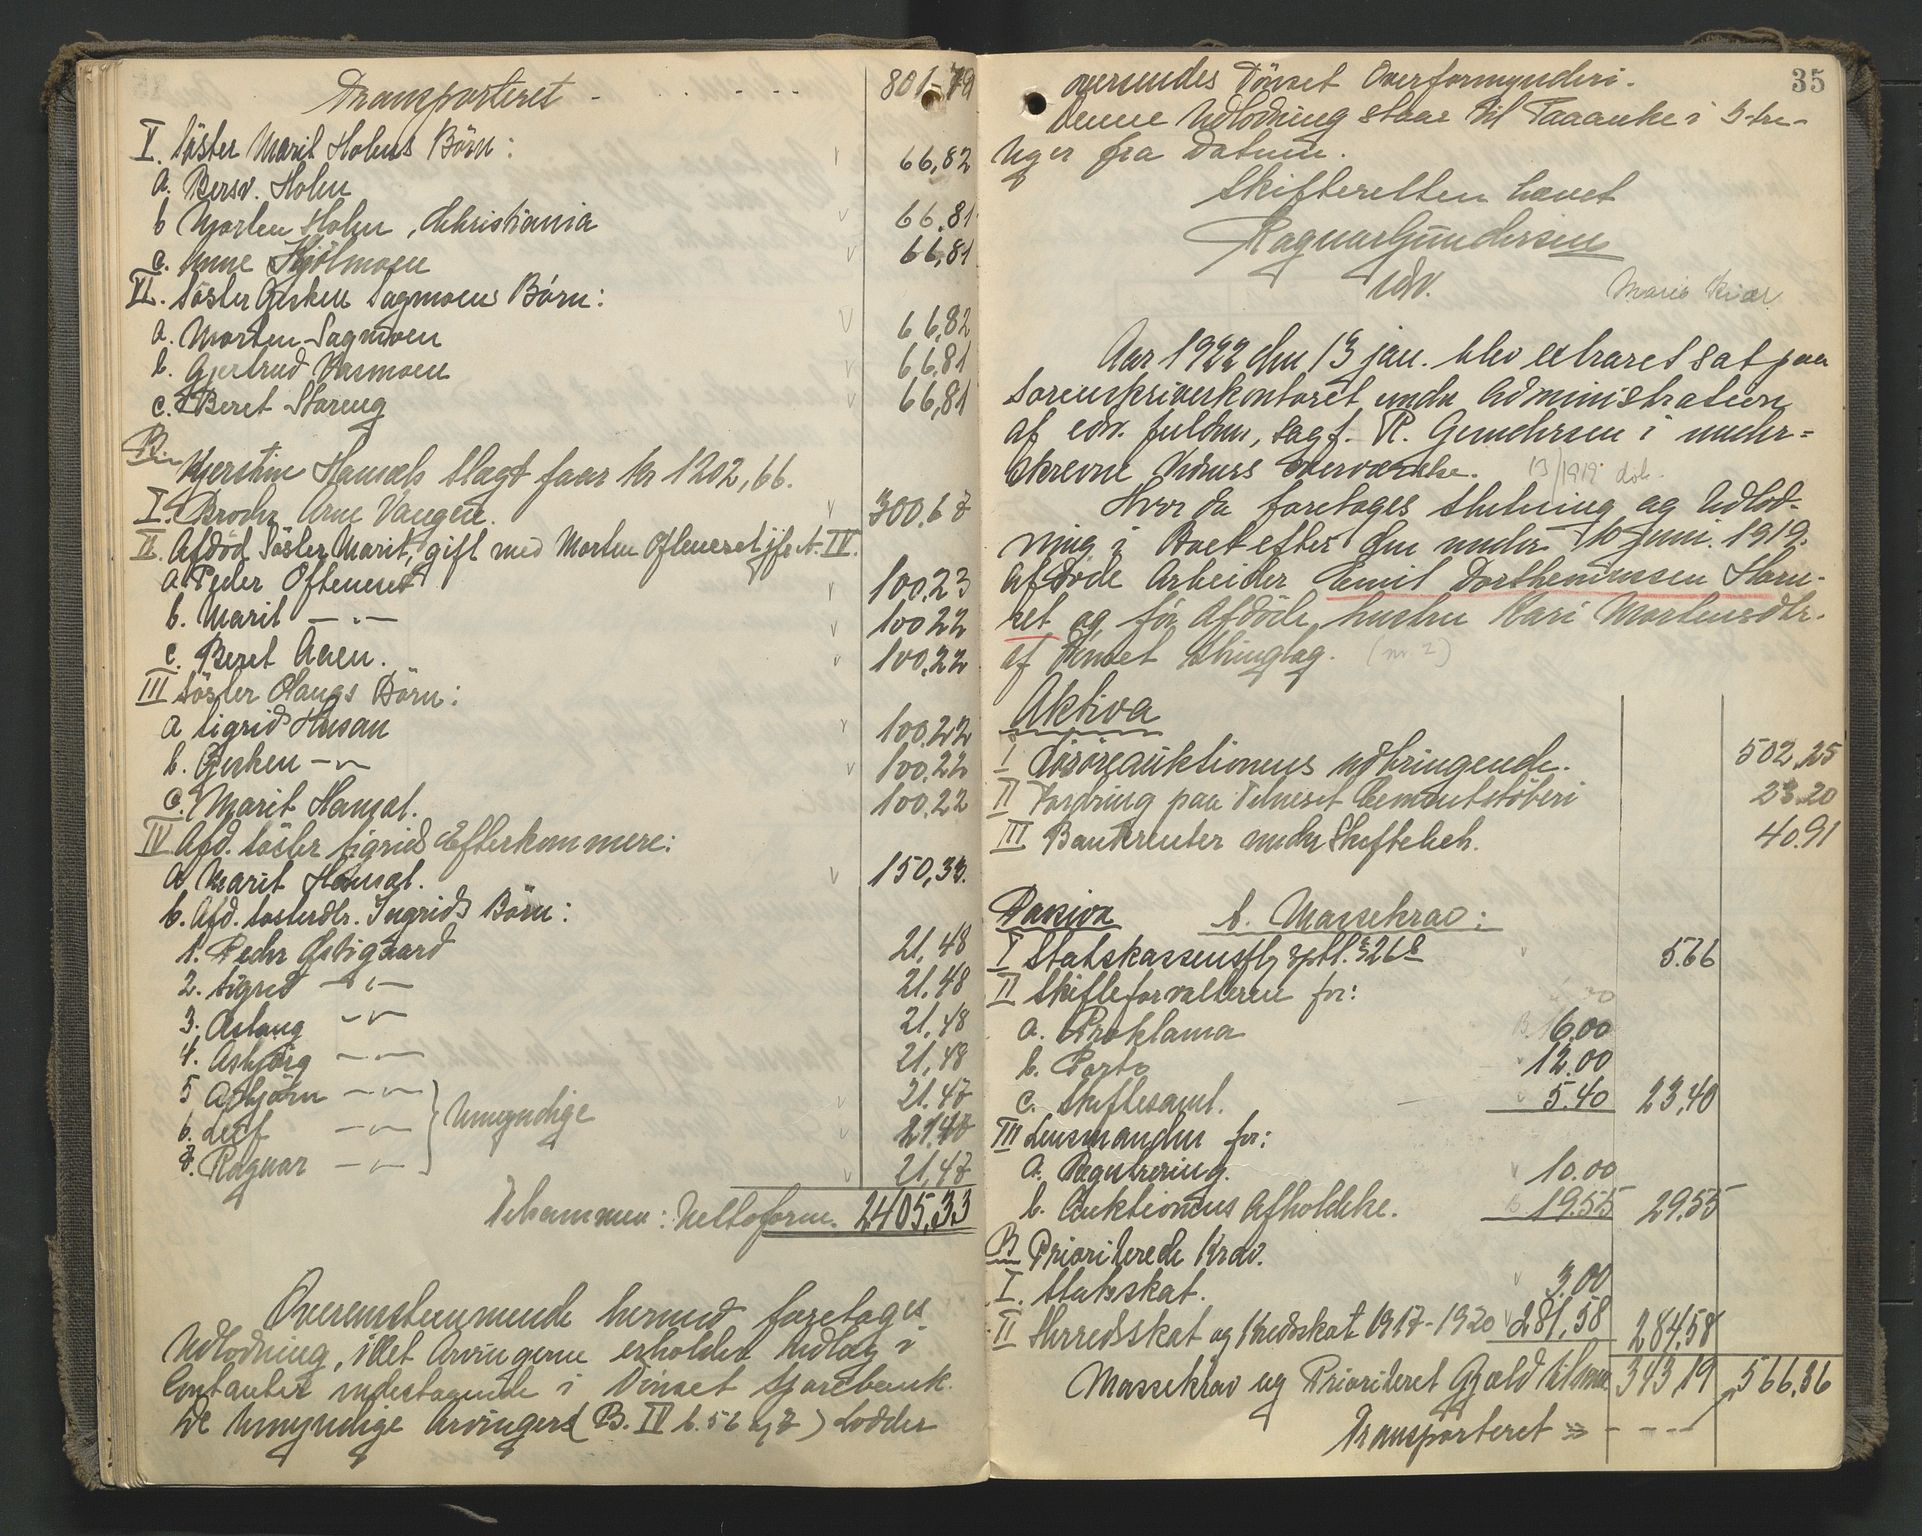 Transporteret - . . - . . 801.79
V. Söster Marit Holms Börn:
a. Bersv. Holm 66,82
b Morten Holm, Christiania 66,81
c. Anne Kjölmoen 66,81
VI. Söster Gjerken Sagmoens Börn:
a. Morten Sagmoen 66,82
b. Gjertrud Vasmoen 66,81
c. Beret Storeng 66,81
B.
Kjerstine Hansæls Slægt faar kr 1202,66.
I. Broder Arne Vangen. 300.67
II. Afdöd Söster Marit, gift med Morten Ofteneset jfr A. IV.
a Peder Ofteneset 100.23
b. Marit — " — 100.22
c. Beret Aaen. 100.22
III Söster Haugs Börn:
a Sigrid Husan 100.22
b. Gjerken — " — 100.22
c. Marit Hansæl. 100.22
IV Afd. Söster Sigrids Efterkommere:
a Marit Hansæl. 150,33.
b. Afd. Sösterdtr. Ingrids Börn:
1. Peder Østigaard 21,48
2. Sigrid — " — 21.48
3. Aslaug — " — 21,48
4. Asbjörg — " — 21,48
5 Asbjörn — " — 21.47
6. Leif — " — } Umyndige 21.47
7. Ragnar — " — 21,47
Tilsammen: Nettoform. 2405,33
Overensstemmende hermed foretages
Udlodning, idet Arvingerne erholder Udlæg i
Contanter indestaaende i Tönset Sparebank.
De Umyndige Arvingers (B. IV b. 5 6 og 7) Lodder
35
oversendes Tönset Overformynderi.
Denne Udlodning staar til Paaanke i 3-tre-
Uger fra Datum.
Skifteretten hævet
Ragnar Gundersen
edv.
Marie Kiær
Aar 1922 den 13 jan. blev extraret sat paa
Sorenskriverkontoret under Administration
af edv. fuldm., sagf. R. Gundersen i under-
skrevne Vidners Overværelse.
13/1919 död.
Hvor da foretoges Slutning og Udlod-
ning i Boet efter den under 10 juni. 1919.
afdöde Arbeider Emil Dorthenussen Horn-
set og för Afdöde hustru Kari Mortensdtr.
af Tönset Thinglag. (nr. 2)
Aktiva
I Lösöreauktionens udbringende. 502,25
II Fordring paa Telneset Cementstöberi 23.20
III Bankrenter under Skiftebeh. 40.91
Passiva
A. Massekrav:
I Statskassen sptl. § 26 8 5.66
II Skifteforvalteren for:
a. Proklama 6.00
b. Porto 12.00
c. Skiftesaml. 5.40 23,40
III Lensmanden for:
a. Registrering. 10.00
b. Auktionens Afholdelse. 19.55 29.55
B Prioriterede Krav.
I. Statsskat. 3.00
II Herredsskat og Kredsskat 1917-1920 281,58 284,58
Massekrav og Prioriteret Gjæld tilsam. 343,19 566,36
Transporteret